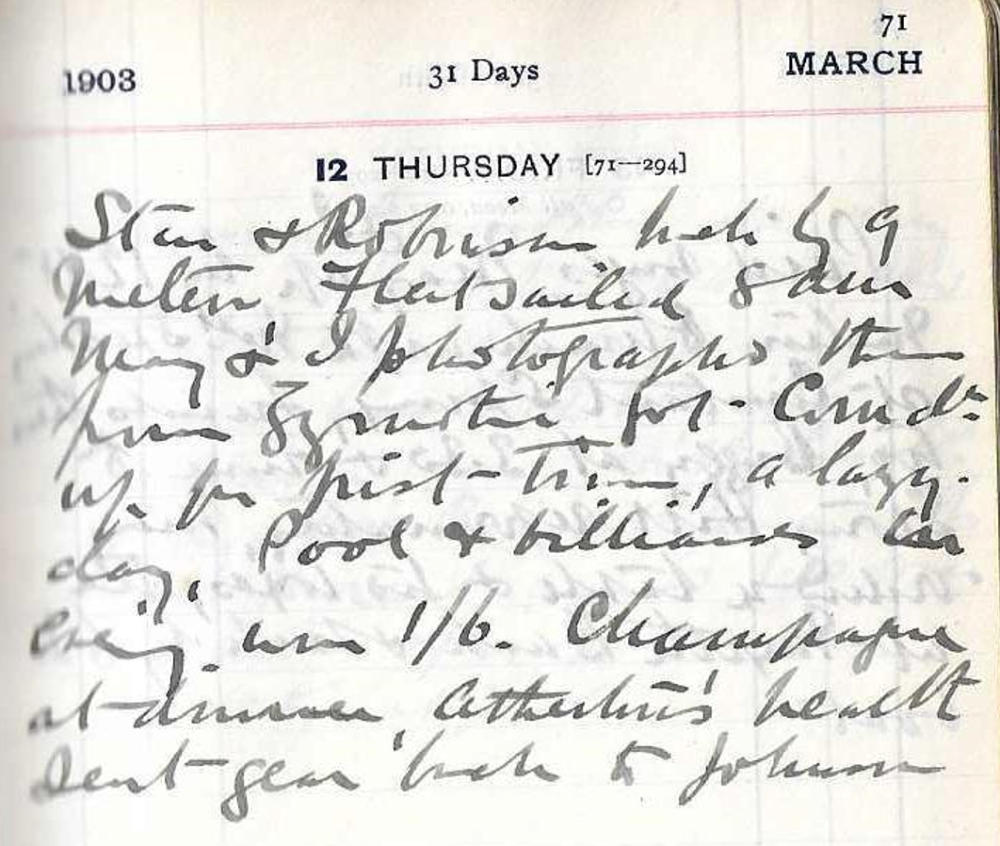 71
1903 31 Days MARCH
12 THURSDAY [71—294]
Stan & Robinson back by 9
Fleet sailed 8 am
May & I photographs them
from Zymotic Got Comdr
up for first time, a lazy
day. Pool & billiards in
eving. won 1/6. Champagne
at dinner, Catherine's health
Sent gear back to Johnson